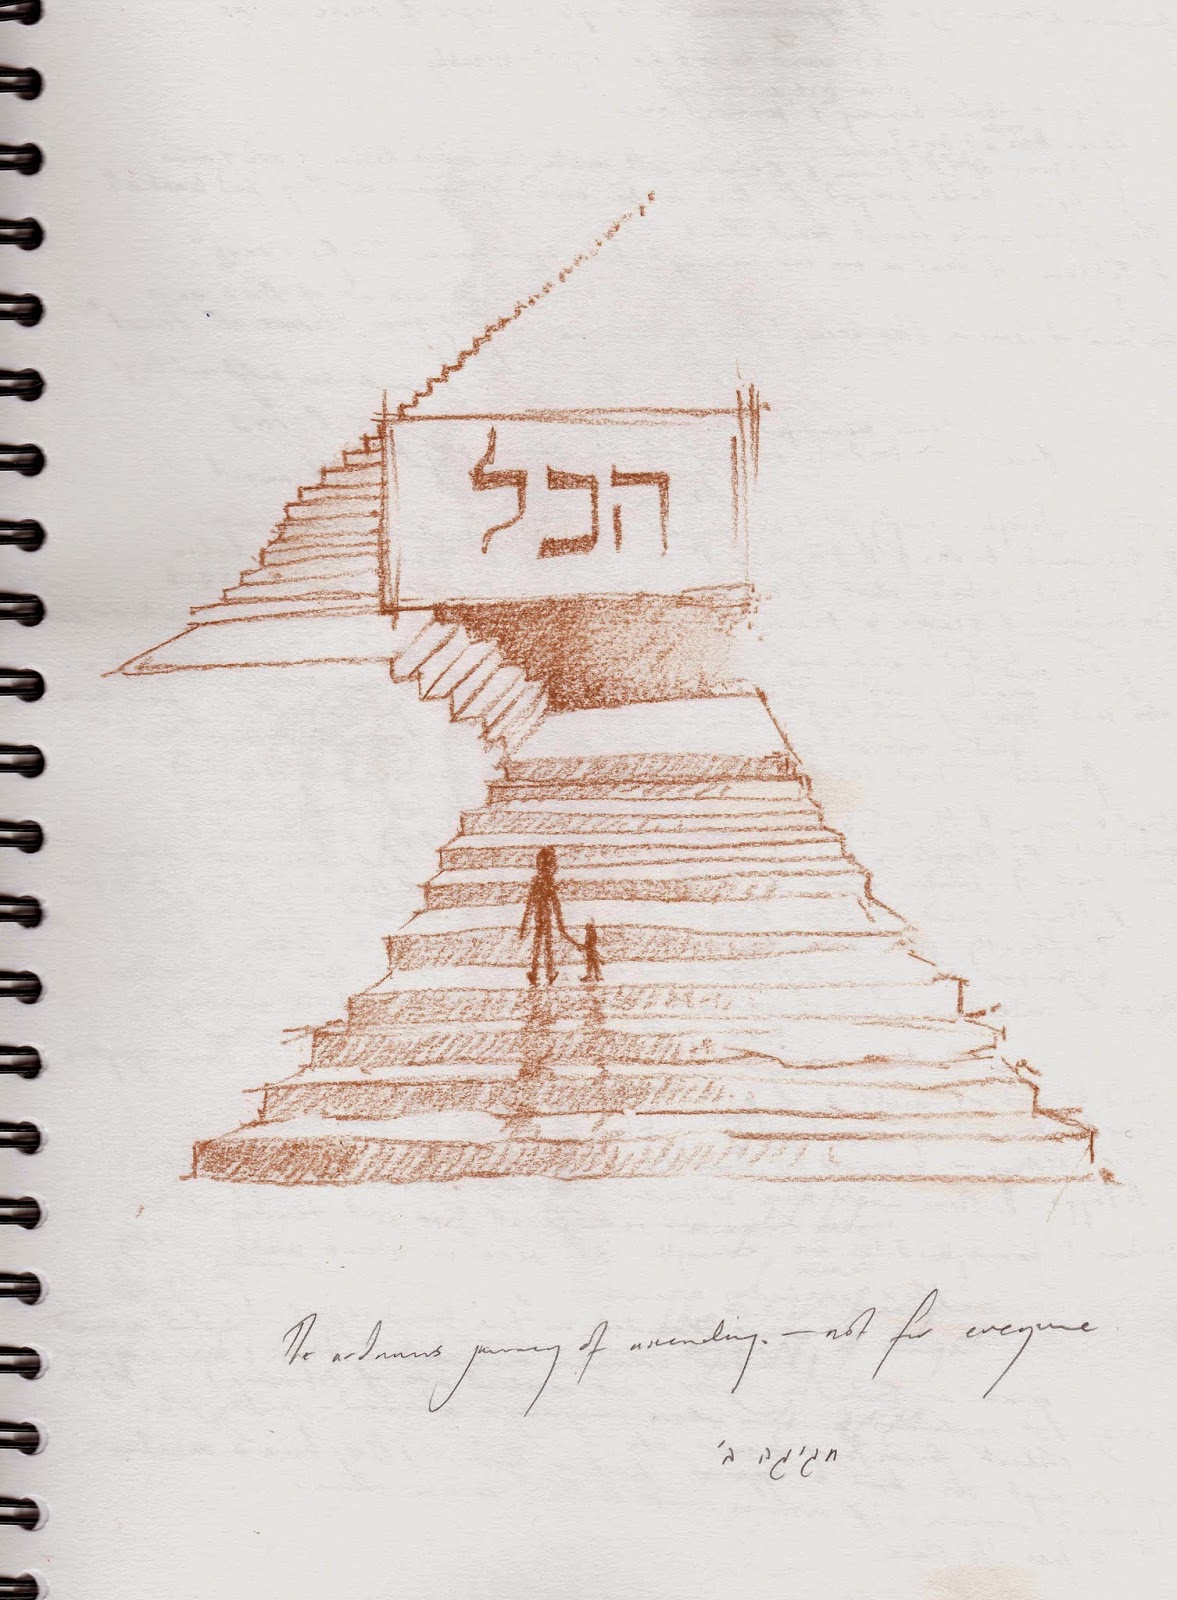 הכל
The arduous journey of ascending. — not for everyone
חגיגה ב'